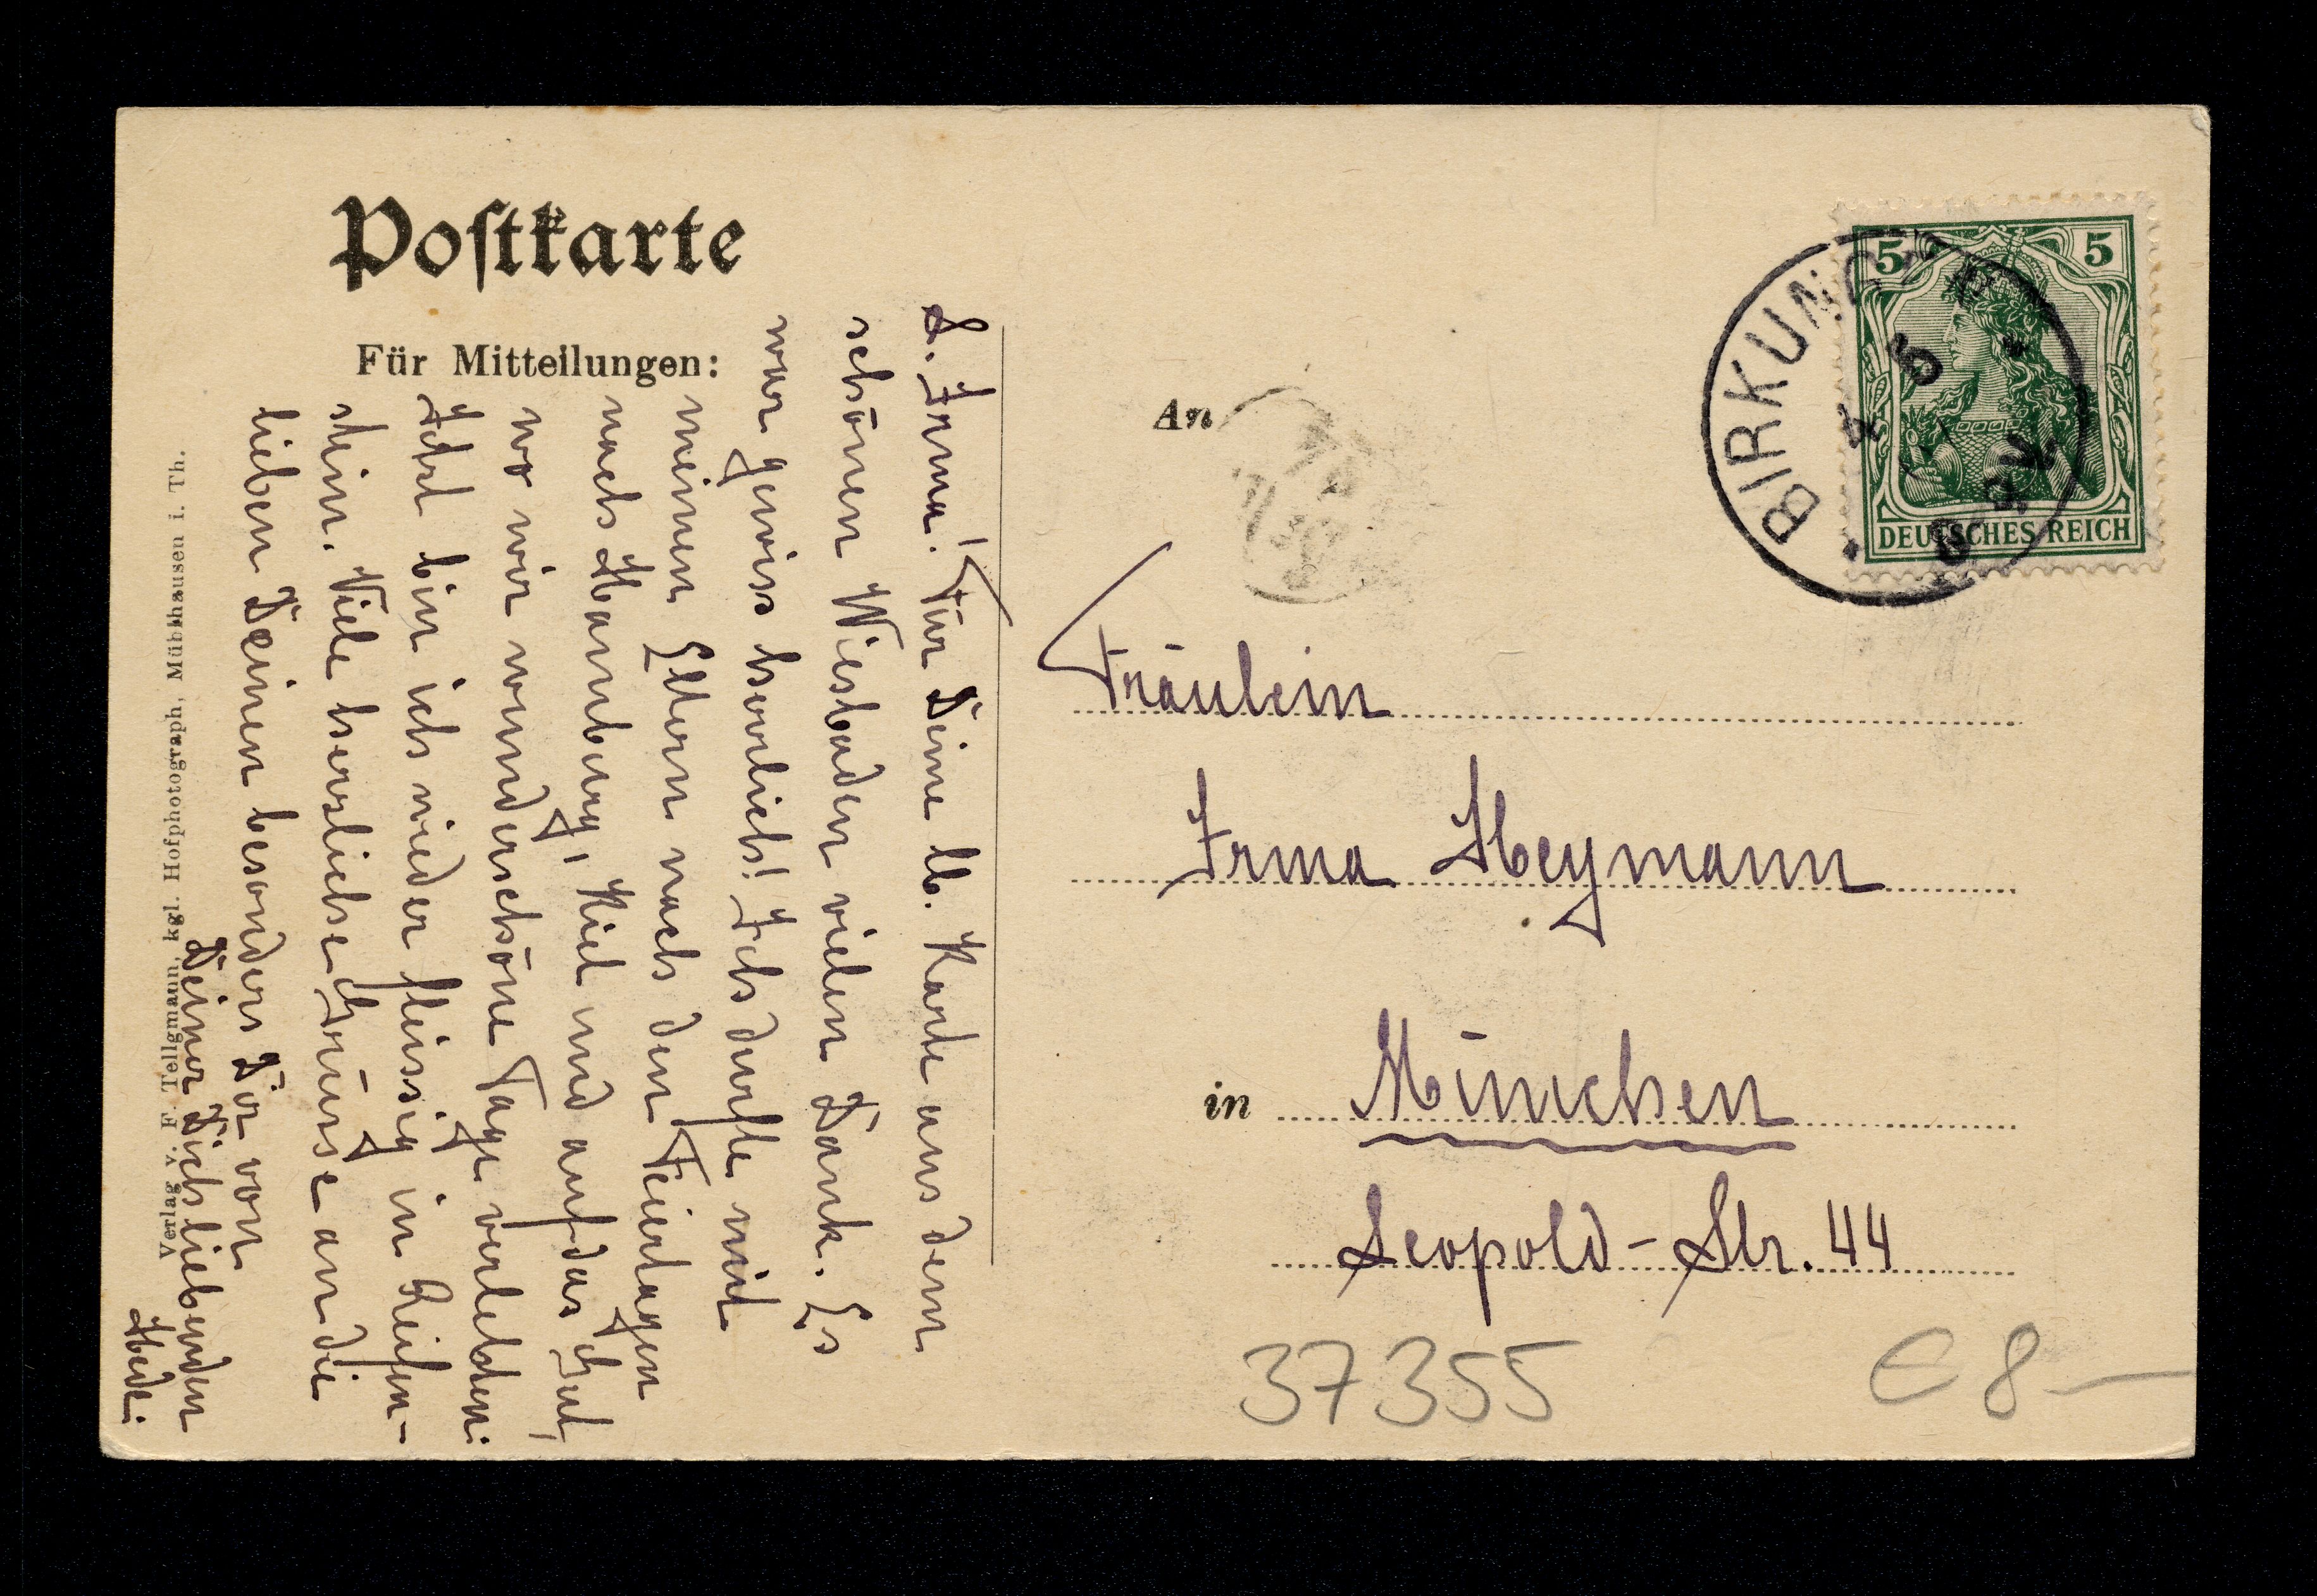 Postkarte
Für Mitteilungen:
L. Irma! Für Deine lb. Karte aus dem
schönen Wiesbaden vielen Dank. Es
war gewiss herrlich! Ich durfte mit
meinen Eltern nach den Feiertagen
nach Hamburg, Kiel und auf das Gut,
wo wir wunderschöne Tage verlebten.
Jetzt bin ich wieder fleissig in Reifen-
stein. Viele herzliche Grüsse an die
lieben Deinen besonders Dir von
Deiner Dich liebenden
Hede.
Verlag v. F. Tellgmann, kgl. Hofphotograph, Mühlhausen i. Th.
An
Fräulein
Irma Heymann
in München
Leopold-Str. 44
37355 € 8—
5 5
DEUTSCHES REICH
BIRKUNGEN